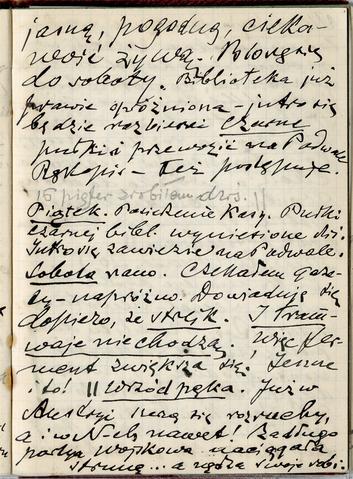 jasną, pogodną, cieka-
wość żywą. Polowę się
do soboty. Biblioteka już
prawie opróżniona – jutro się
będzie rozbierać czarne
półki i przewozić na Padwale.
Rękopis – też postępuje.
16 zrobiłem dziś. ||
Piątek. kasy. Półki
czarnej bibl. wyniesione dziś.
Jutro się zawiezie na Padwale.
Sobota rano. Czekałem gaze-
ty – napróżno. Dowiaduję się
dopiero, że strejk. I tram-
waje nie chodzą. Więc fer-
ment zwiększa się! Jeszcze
i to! || Wrzód pęka. Już w
Austryi są rozruchy,
a i w N-ch nawet! Za długo
partya wojskowa naciągała
strunę... a swoje robi.